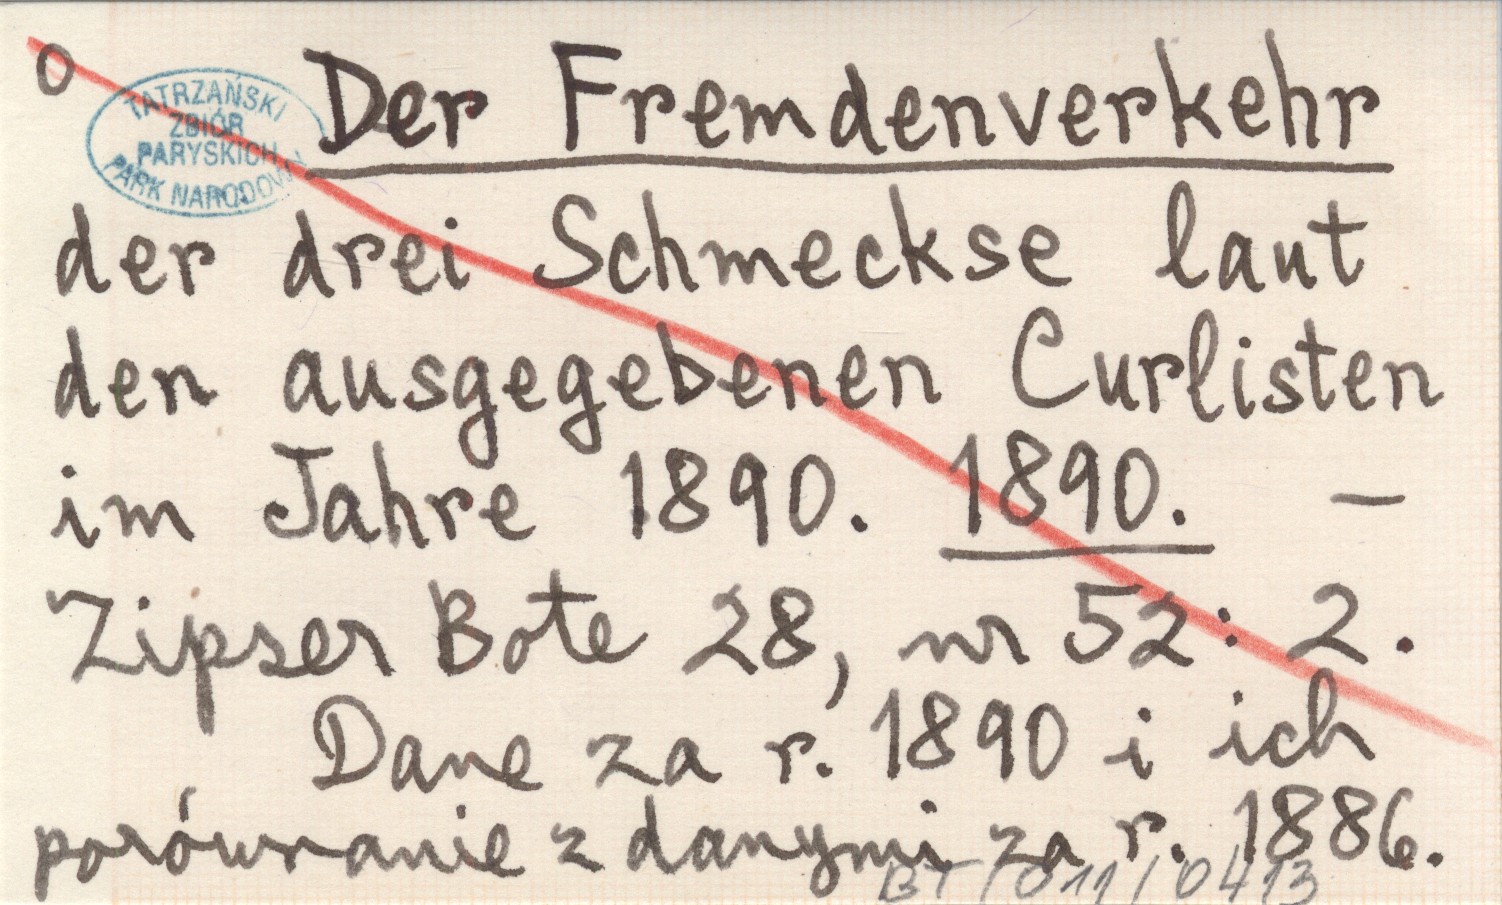 o
TATRZAŃSKI
ZBIÓR
PARYSKICH
PARK NARODOWY
Der Fremdenverkehr
der drei Schmeckse laut
den ausgegebenen Curlisten
im Jahre 1890. 1890. —
Zipser Bote 28, nr 52: 2.
Dane za r. 1890 i ich
porównanie z danymi za r. 1886.
BT/011/0413